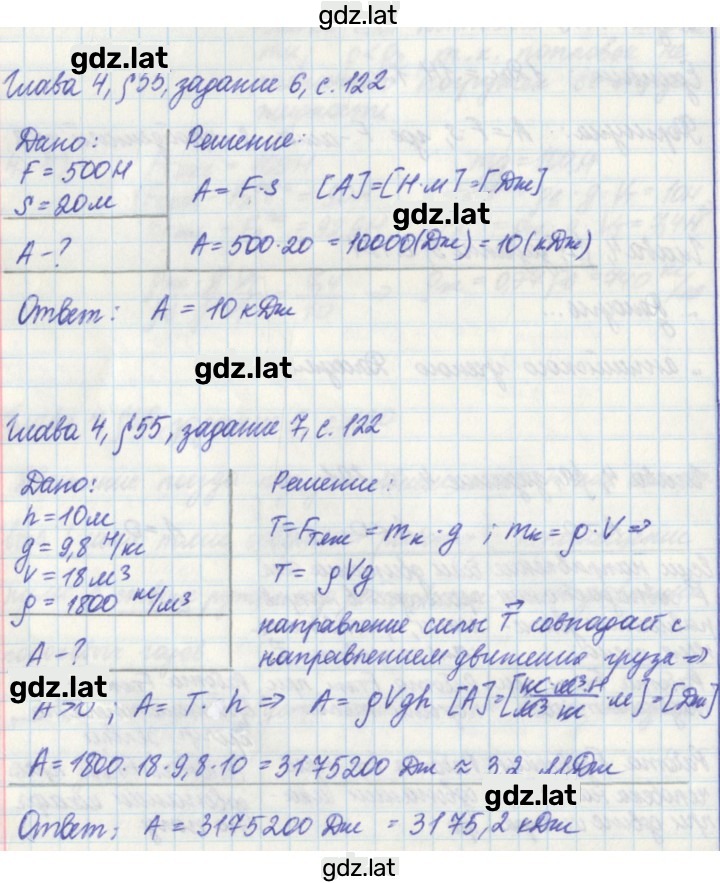 gdz.lat
gdz.lat
Глава 4, §55, задание 6, с. 122
Дано:
F = 500 Н
S = 20 м
А - ?
Решение:
A = F·S [A]=[Н·м]=[Дж]
gdz.lat
A = 500·20 = 10000(Дж) = 10(кДж)
Ответ: A = 10 кДж
gdz.lat
Глава 4, §55, задание 7, с. 122
Дано:
h = 10 м
g = 9,8 Н/кг
V = 18 м³
ρ = 1800 кг/м³
А - ?
Решение:
T = Fтяж = mк · g ; mк = ρ · V ⇒
T = ρVg
направление силы T⃗ совпадает с
направлением движения груза ⇒
gdz.lat
A > 0 ; A = T · h ⇒ A = ρVgh [A]=[кг·м³·Н/м³·кг ·м]=[Дж]
A = 1800·18·9,8·10 = 3175200 Дж ≈ 3,2 МДж
gdz.lat
Ответ: A = 3175200 Дж = 3175,2 кДж
gdz.lat